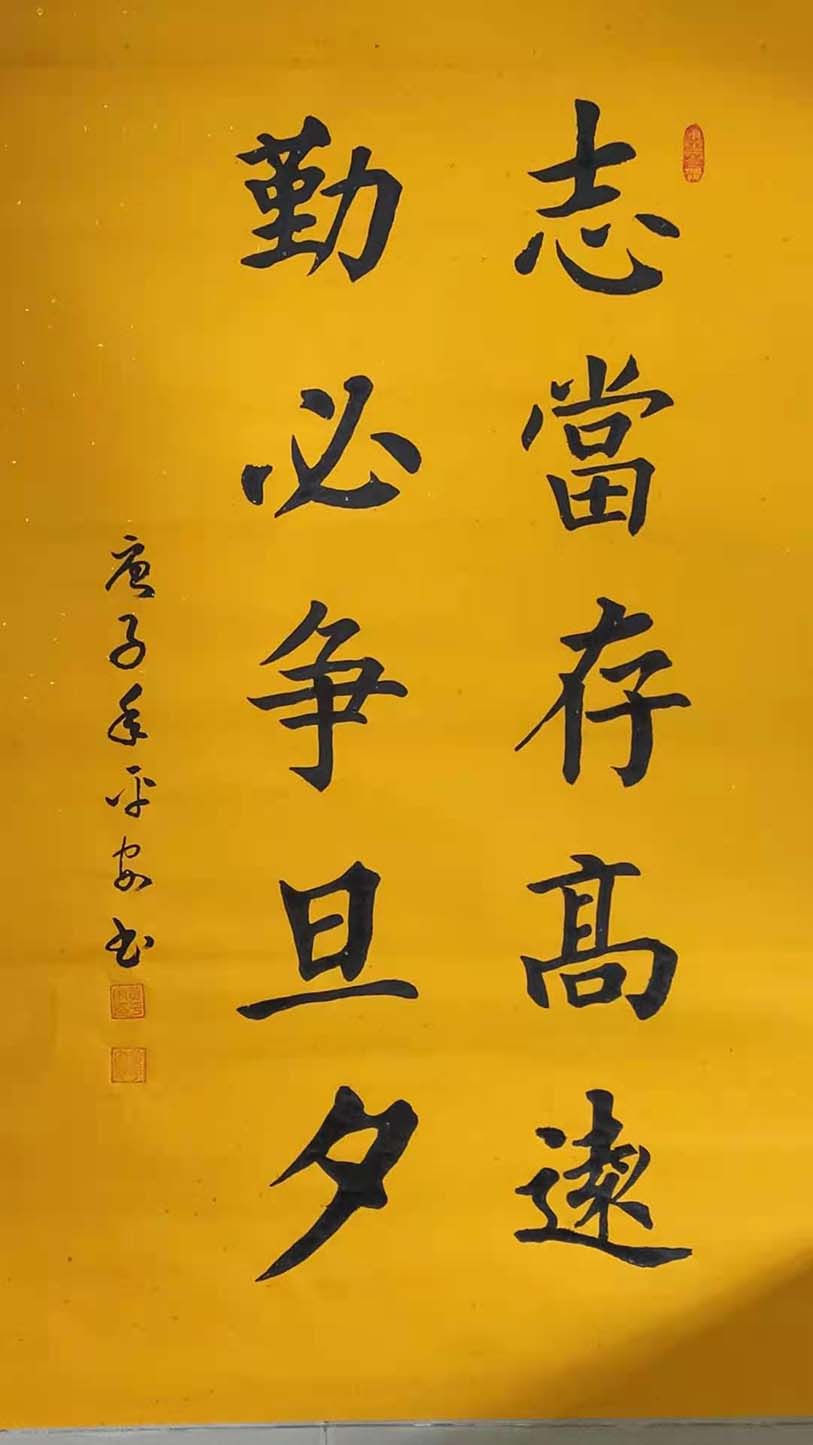 志當存高遠
勤必争旦夕
庚子年平安书